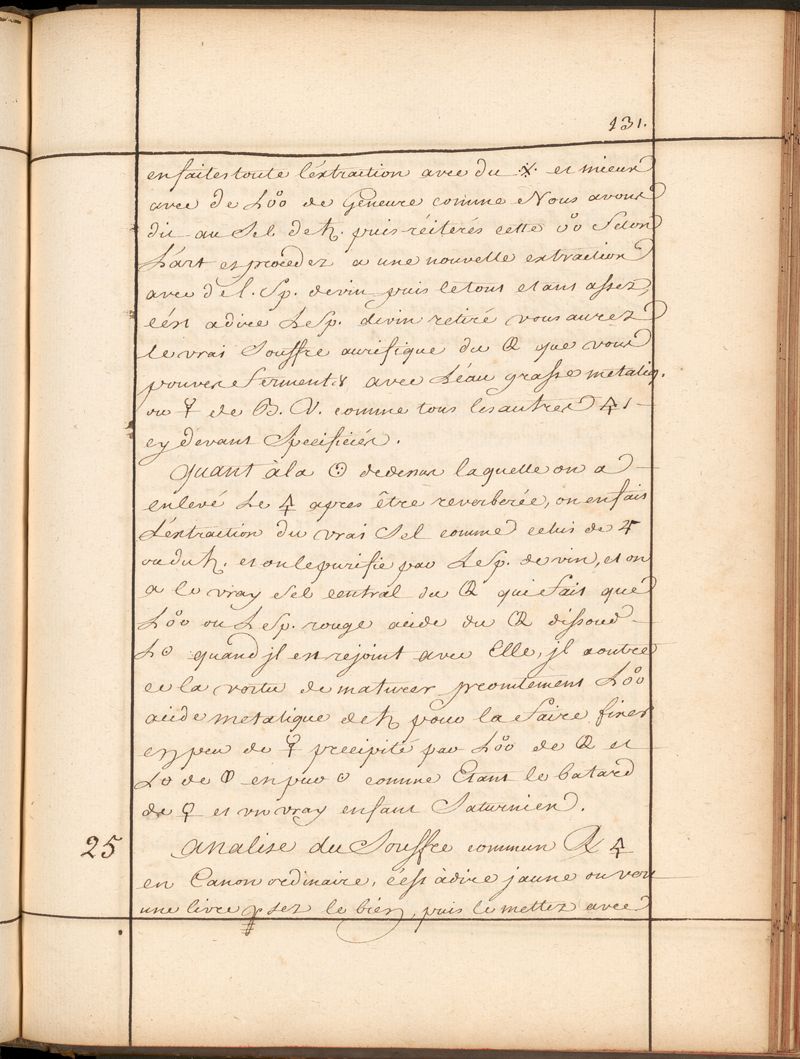 131.
en faites toute l'extraction avec du .X. et mieux
avec de L'oo de Genevre comme Nous avons
dit au Sel de ♄. puis réiterés cette oo Selon
L'art et procedez a une nouvelle extraction
avec de l. Sp. de vin puis le tout etant assez,
c'ést adire Le Sp. de vin retiré vous aurez
le vrai Souffre aurifique du que vous
pouvez fermenter avec L'éau grasse metaliq.
ou ☿ de B. V. comme tous les autres 🜍 s
cy devant Specifiées.
Quant à la ☉ dedenus laquelle on a
enlevé Le 🜍 apres être reverberée, on en fait
L'extraction du vrai Sel comme celui de ♃
ou du ♄. et on le purifie par Le Sp. de vin, et on
a le vray Sel central du qui fait que
L'oo ou Le Sp. rouge acide du dissout
L☉ quand jl en rejoint avec Elle, jl a outre
ce la vertu de maturer promtement L'oo
acide metalique de ♄ pour la faire fixer
en peu de ☿ precipité par L'oo de et
L☉ de en pur ☉ comme Etant le batard
de ♀ et un vray enfant Saturnien.
25 Analise du Souffre commun 🜍
en Canon ordinaire, c'est à dire jaune ou ver
une livre p sez le bién, puis le mettez avec